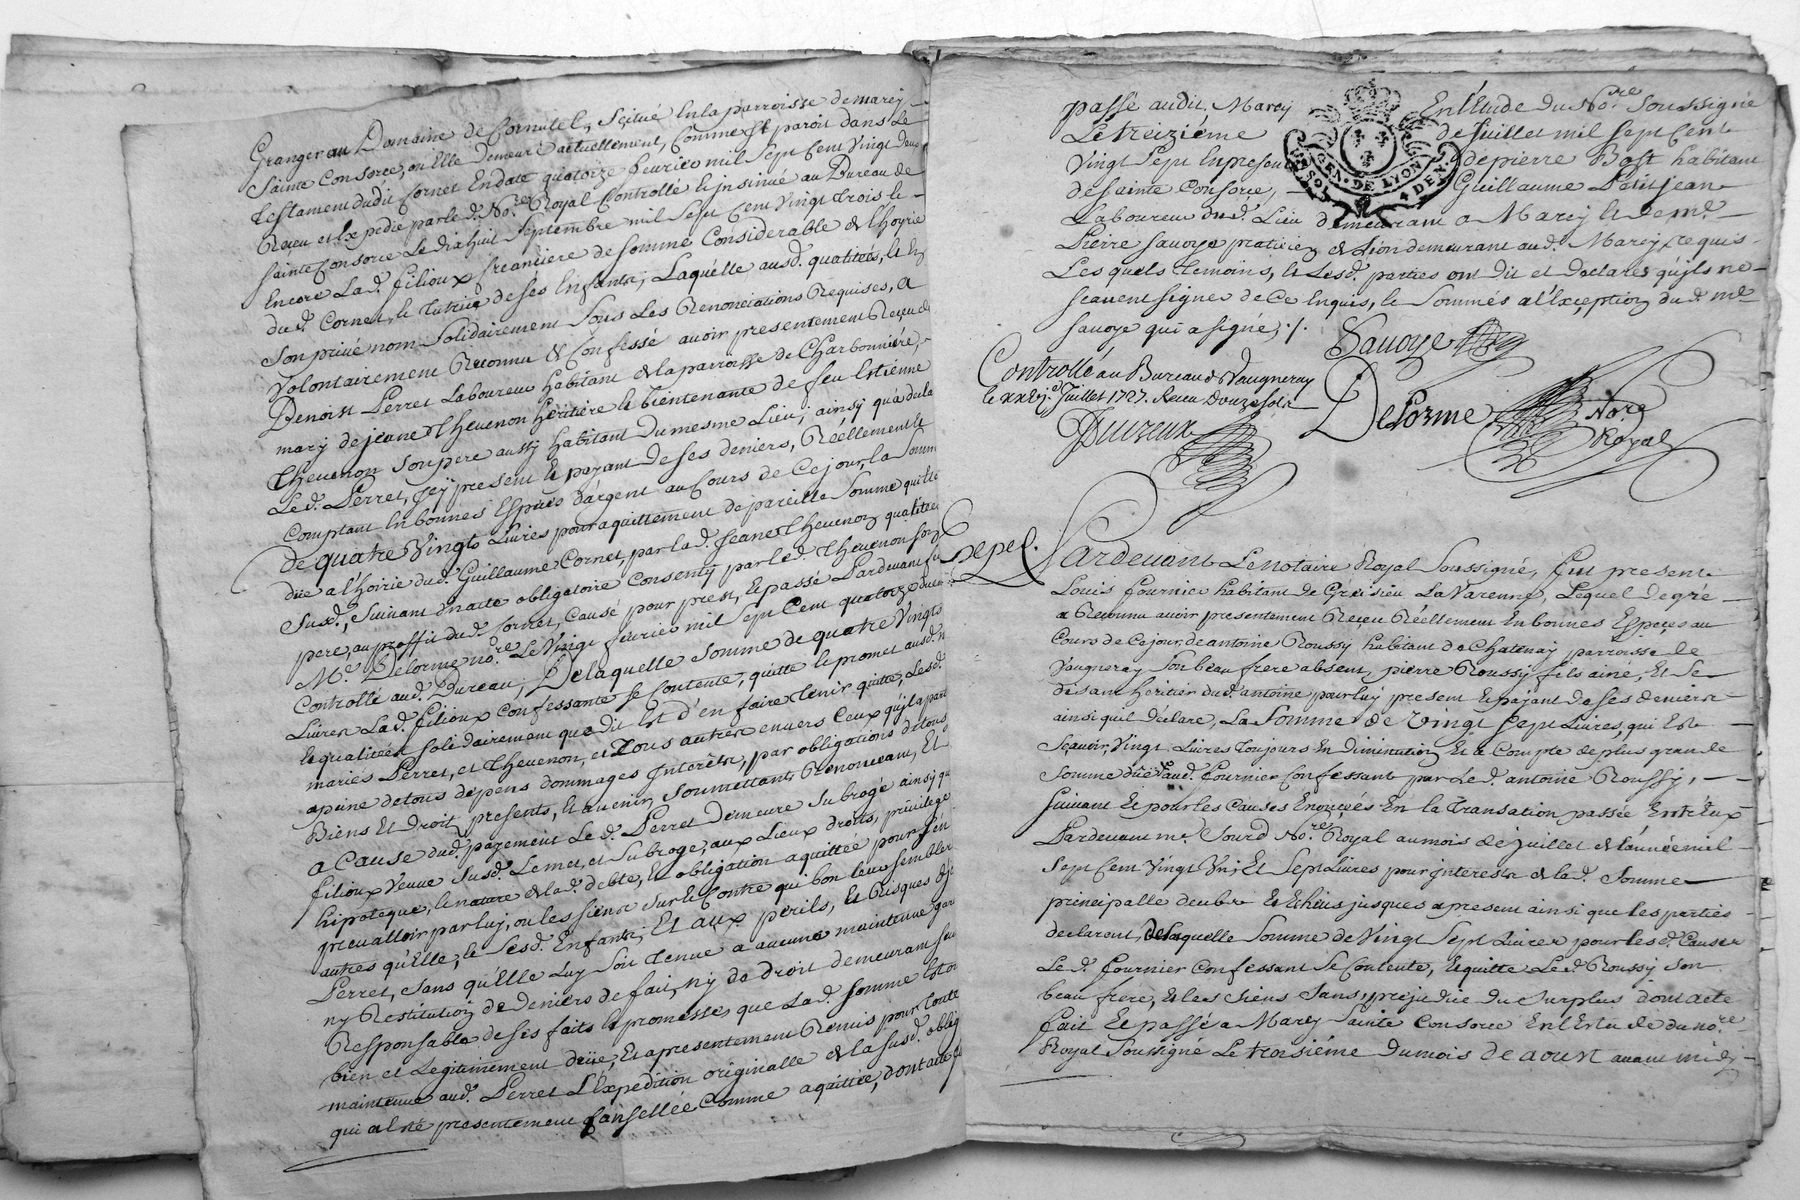 Granger au Domaine de Cornutel, Scitué En la parroisse de marcy
Sainte Consorce, ou Elle Demeure actuellement, Comme Il paroit dans Le
Testament dudit Cornet En datte quatorze fevrier mil Sept Cent Vingt Deux
Reçeu et Expedié par le d. No.re Royal Controllé et insinué au Bureau de
Sainte Consorce Le Dix huit Septembre mil Sept Cent Vingt Trois Et
Encore La d. filioux Creanciere de Somme Considerable de l'hoyrie
du d. Cornet, et Tutrice de Ses Enfants, Laquelle aux d. qualités, et En
Son privé nom Solidairement Sous Les Renonciations Requises, a
Volontairement Reconnu & Confessé avoir presentement Reçeu de
Benoist Perret Laboureur habitant de la parroisse de Charbonniére,
mary de jeane Thevenon heritiere et bientenante de feu Estienne
Thevenon Son pere aussy habitant Du mesme Lieu, ainsy qu'a declaré
Le d. Perret, Jcy present Et payant De Ses deniers, Réellement Et
Comptant En bonnes Espéces d'argent au Cours de Ce jour, la Somme
De quatre Vingts Livres pour aquittement de pareille Somme quelle
düe a l'hoirie du d. Guillaume Cornet, par la d. Jeane Thevenon qualitée
Sus d., Suivant un acte obligatoire Consenty par le d. Thevenon Son
pere, au proffit du d. Cornet, Causé pour prest, Et passé Pardevant
M.e Delorme no.re Le Vingt fevrier mil Sept Cent quatorze
Controllé au d. Bureau, De laquelle Somme de quatre Vingts
Livres La d. filioux Confessante Se Contente, quitte et promet aus d.
Et qualitées Solidairement que dit Est d'en faire Tenir quitte, Les d.
mariés Perret, et Thevenon, et Tous autres envers Ceux qu'il a part
apeine de tous depens dommages Interêtx, par obligations de tous
Biens Et Droits presents, et avenir Soumettants Renonceant, Et
a Cause du d. payement Le d. Perret Demeure Subrogé ainsy que
filioux Veuve Sus d. Le met, et Subroge, aux Lieux droits, privilege
hipoteque, et nature de la d. debte, et obligation aquittée pour S'en
prevalloir par luy, ou les Siens Sur Et Contre qui bon leur Semblera
autres qu'Elle, et Ses d. Enfants, Et aux perils, et Risques du d.
Perret, Sans qu'Elle Luy Soit Tenue a aucune maintenue
ny Restitution de Deniers de fait, ny de Droit demeurant
Responsable de Ses faits et promesses que La d. Somme Est
bien et Legitimement düe, Et a presentement Remis pour toute
maintenue au d. Perret L'Expedition originalle de la Sus d.
qui a Eté presentement Cansellée Comme aquittée, dont acte
passé audit Marcy En l'Etude du No.re Soussigné
Le treiziéme de Juillet mil Sept Cent
Vingt Sept En presence de pierre Bost habitant
de Sainte Consorce, Guillaume Petitjean
Laboureur du d. Lieu demeurant a Marcy et de m.e
Pierre Savoye praticien de Lion demeurant au d. Marcy, requis
Les quels Temoins, et Les d. parties ont dit et Declarés qu'ils ne
Sçavent Signer de Ce Enquis, et Sommés a l'Exception du d. m.e
Savoye qui a Signé ./.
GEN. DE LYON
4 DEN.
Savoye
Controllé au Bureau de Vaugneray
le xxvj.e Juillet 1727. Receu Douze Sols
Delorme
No.re
Royal
Exped.
Pardevant Le notaire Royal Soussigné, fut present
Louis fournier habitant de Gresieu La Varenne, Lequel de gré
a Reconnu avoir presentement Reçeu Réellement En bonnes Espeçes au
Cours de Ce jour de antoine Roussy habitant de Chatenay parroisse de
Vaugneray Son beau frere absent, pierre Roussy fils ainé, Et Se
disant heritier du d. antoine pour luy present et payant de Ses deniers
ainsi quil déclare, La Somme de Vingt Sept Livres, qui Est
Sçavoir, Vingt Livres Toujours En Diminution Et a Compte de plus grande
Somme düe au d. fournier Confessant par Le d. antoine Roussy,
Suivant Et pour les Causes Enonçées En la Transation passée Entr'Eux
Pardevant m.e Sourd No.re Royal au mois de juillet de l'année mil
Sept Cent Vingt Un, Et Sept Livres pour jnterestx de la d. Somme
principalle deubs Et Echeus jusques a present ainsi que les parties
declarent, De laquelle Somme de Vingt Sept Livres pour les d. Causes
Le d. fournier Confessant Se Contente, et quitte Le d. Roussy Son
beau frere, et les Siens Sans prejudice du Surplus dont acte
fait Et passé a Marcy Sainte Consorce En l'Estude du no.re
Royal Soussigné Le troisiéme Du mois de aoust avant midy